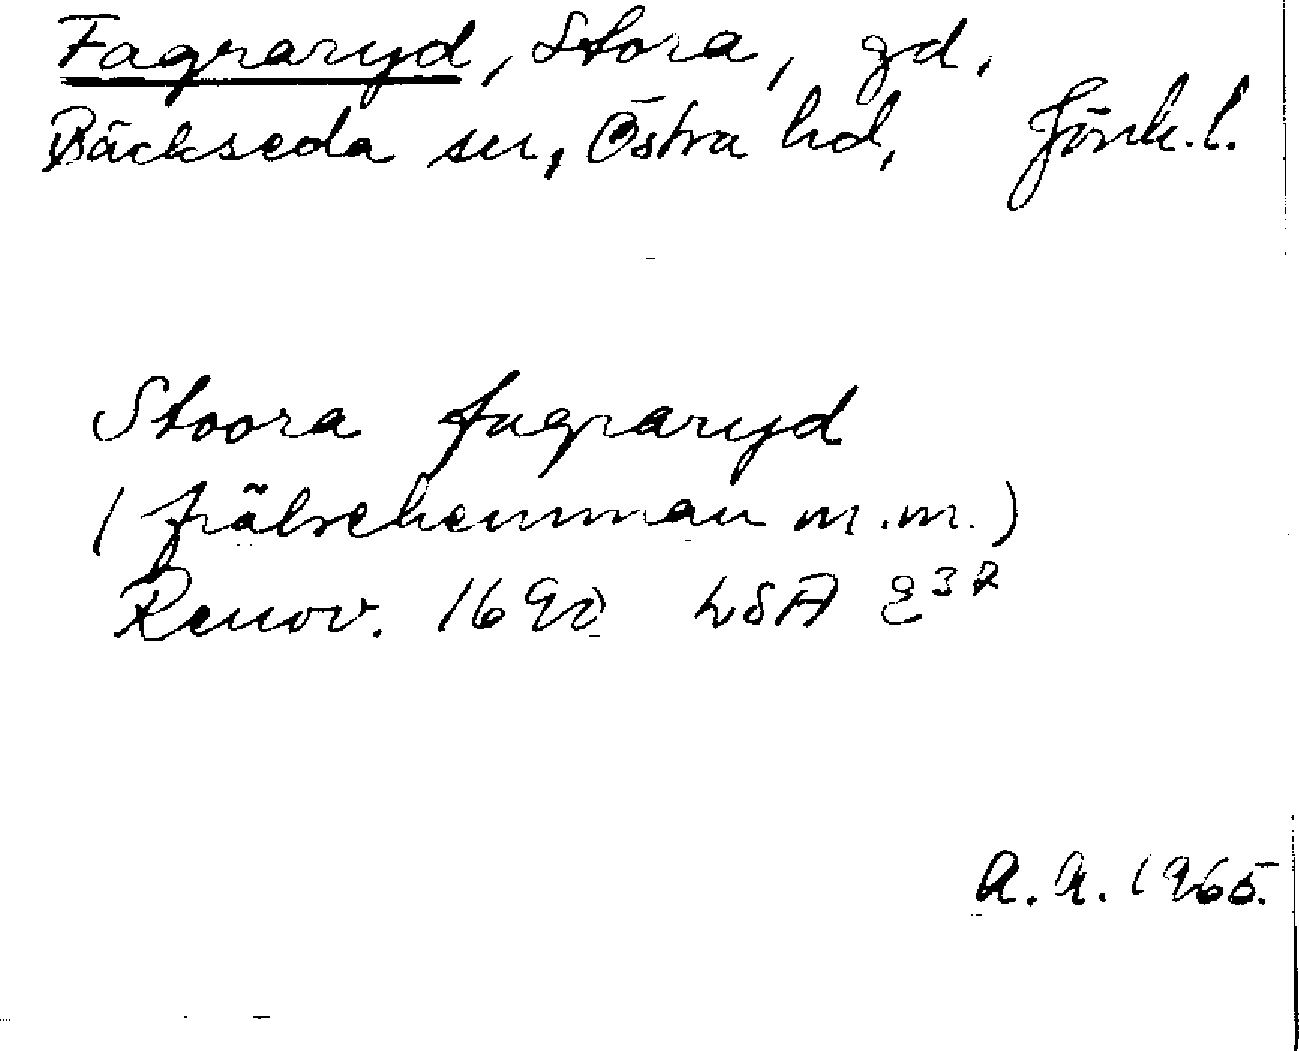 Fagraryd, Stora, gd,
Bäckseda sn, Östra hd, Jönk.l.
Stoora fagraryd
(frälsehemman m.m.)
Renov. 1690 LSA E³⁷
A.A. 1965.